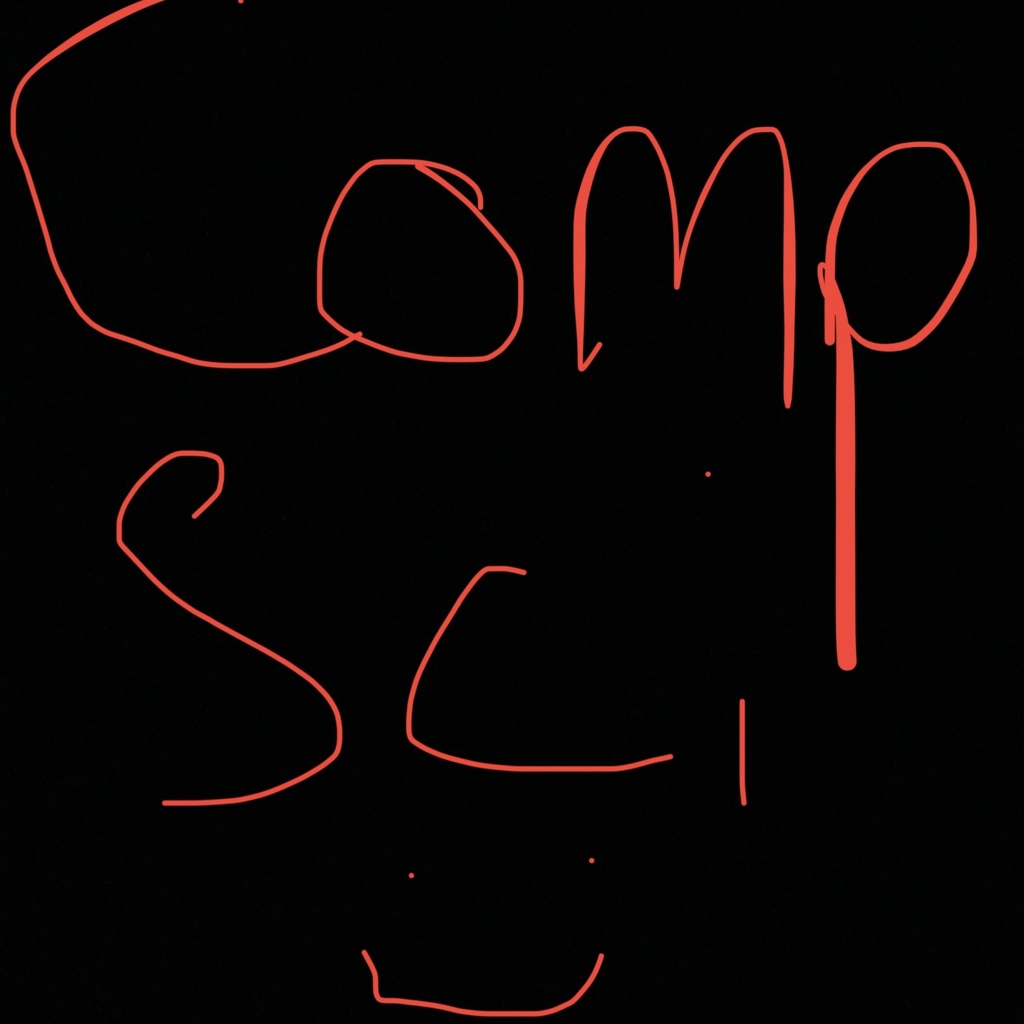 Comp
Sci